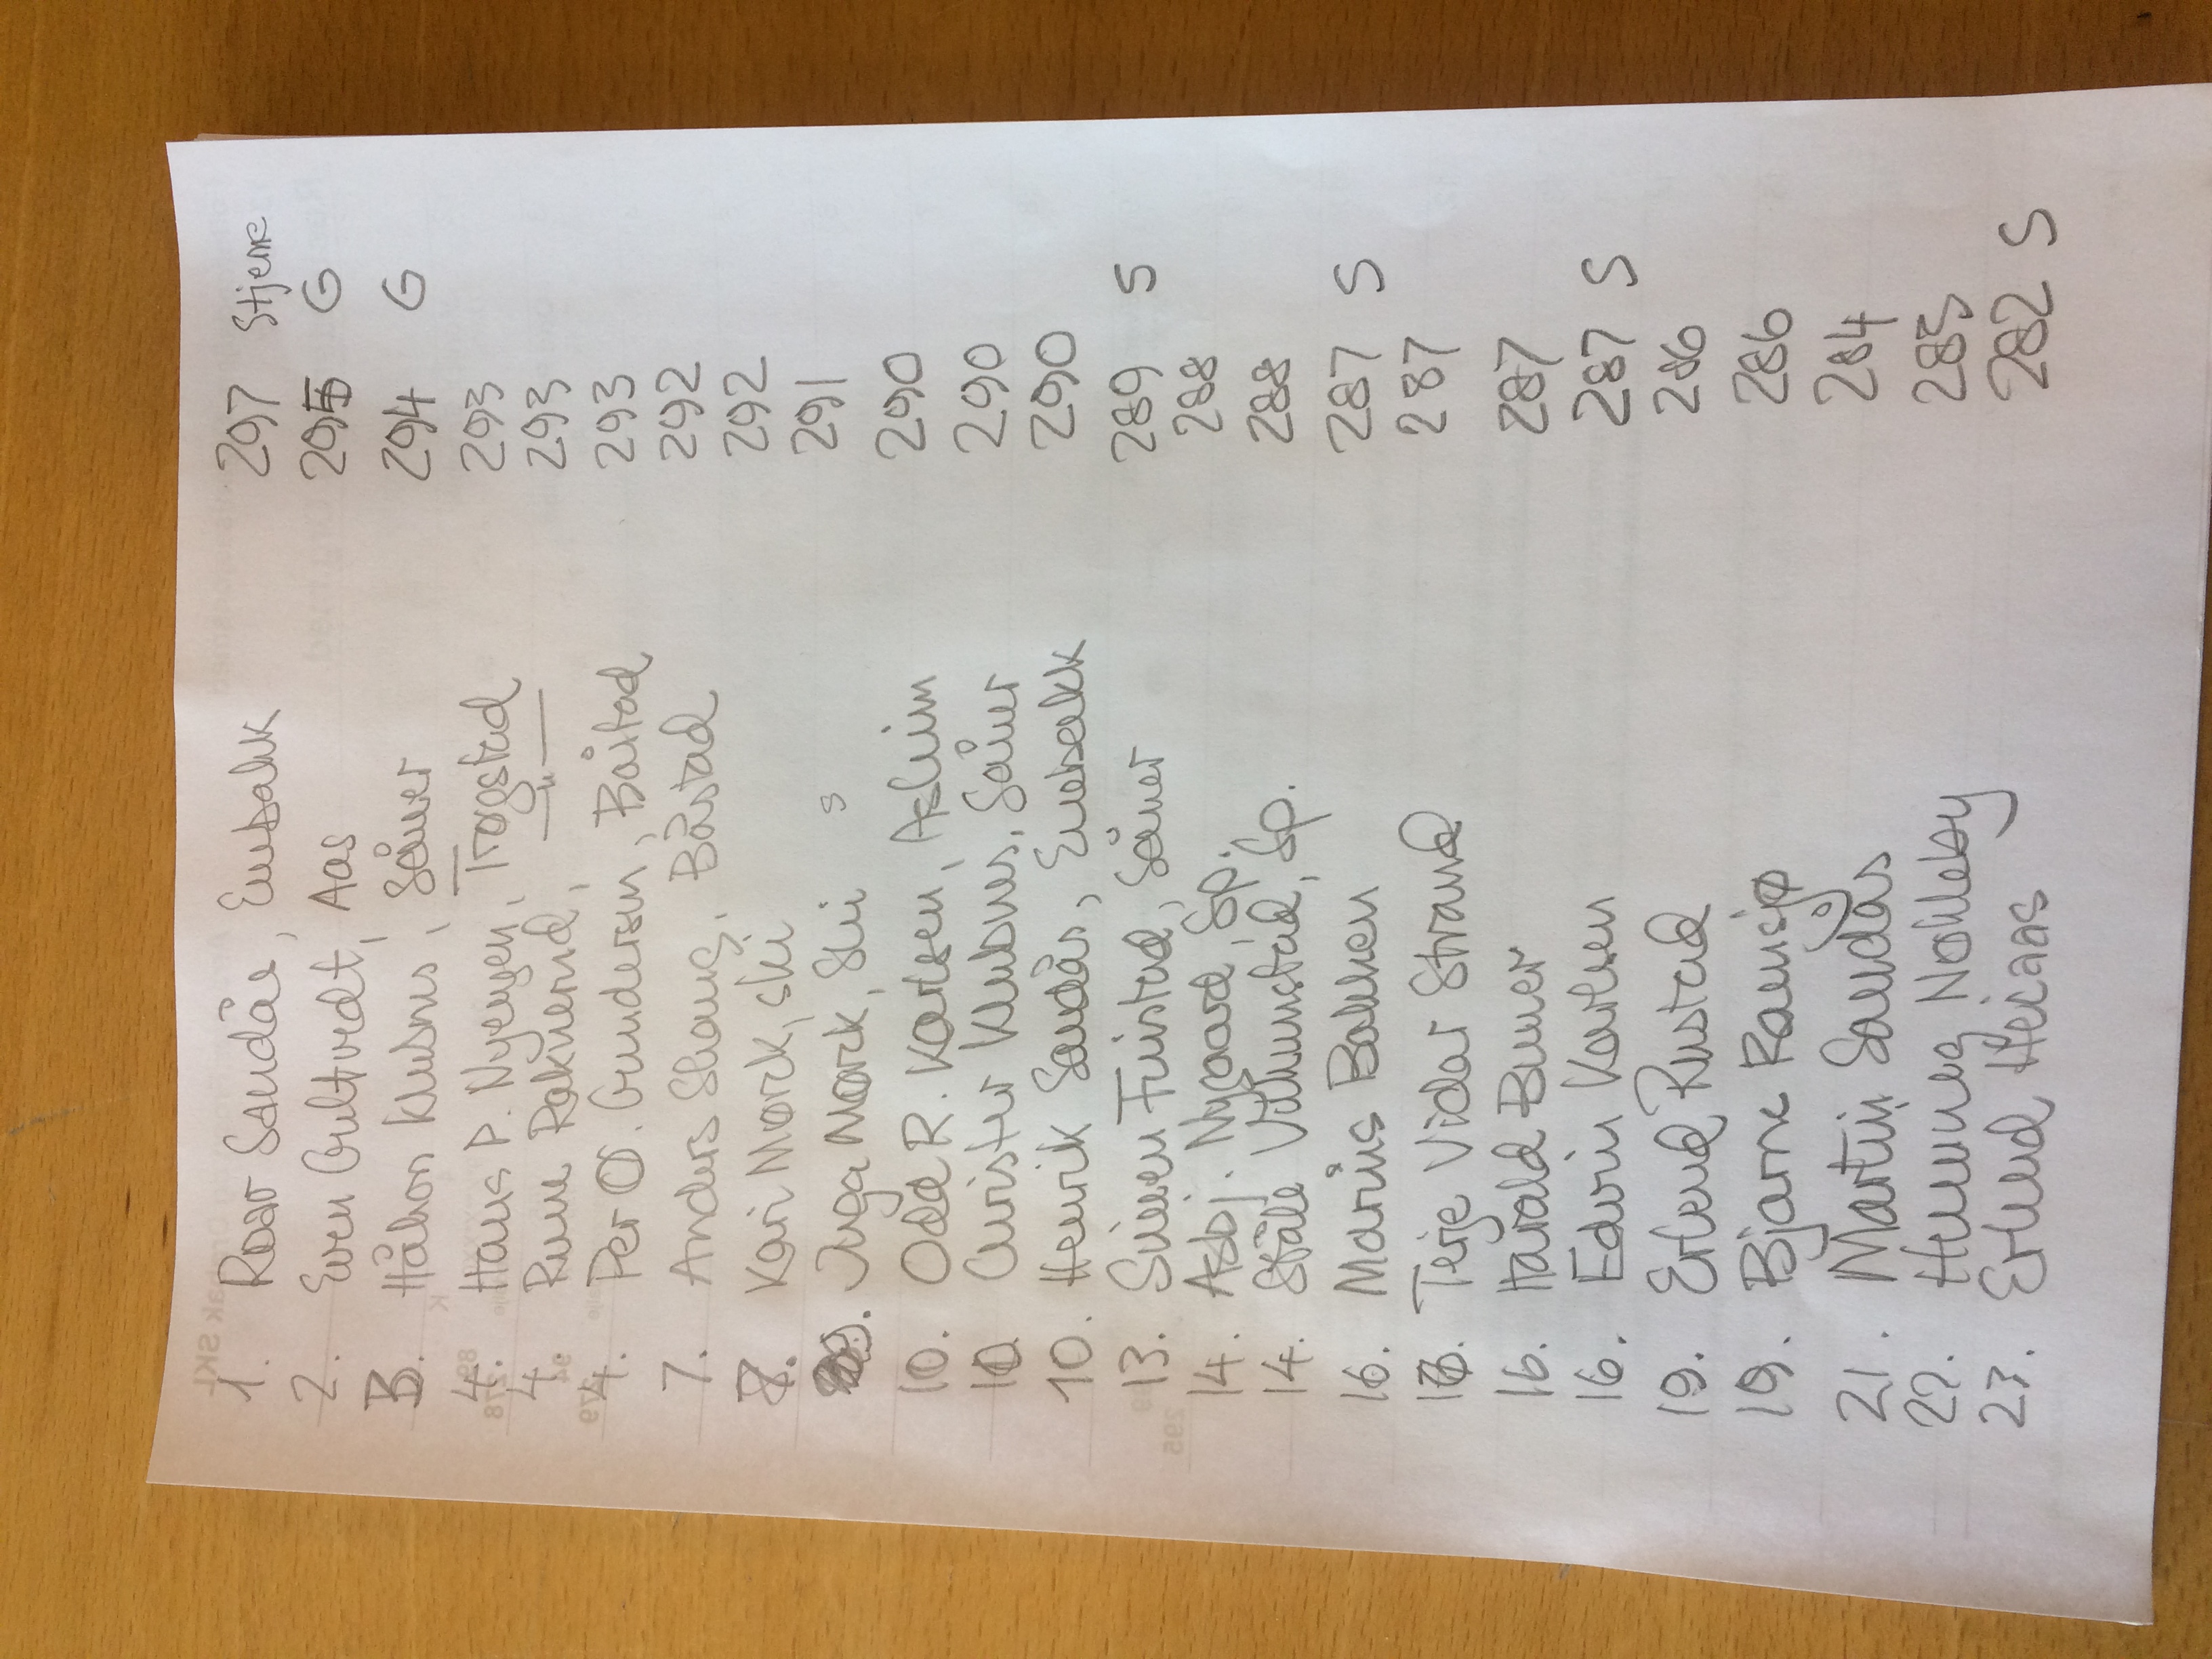 1. Roar Sandås, Enebakk 297 Stjerne
2. Even Gultvedt, Aas 295 G
3. Håkon Klubnes, Såner 294 G
4. Hans P. Nyengen, Trøgstad 293
4. Rune Raknerud, —"— 293
4. Per Ø. Gundersen, Båstad 293
7. Anders Skaug, Båstad 292
7. Kari Mørck, Ski 292
9. Inga Mørck, Ski S 291
10. Odd R. Karlsen, Askim 290
10. Christer Klubnes, Såner 290
10. Henrik Sandås, Enebakk 290
13. Simen Finstad, Såner 289 S
14. Asbj. Nygaard, Sp. 288
14. Ståle Villumstad, Sp. 288
16. Marius Bakken 287 S
16. Terje Vidar Strand 287
16. Harald Buner 287
16. Edvin Karlsen 287 S
19. Erlend Rustad 286
19. Bjarne Ramsjø 286
21. Martin Sandås 284
22. Henning Nohleby 283
23. Erlend Heiaas 282 S